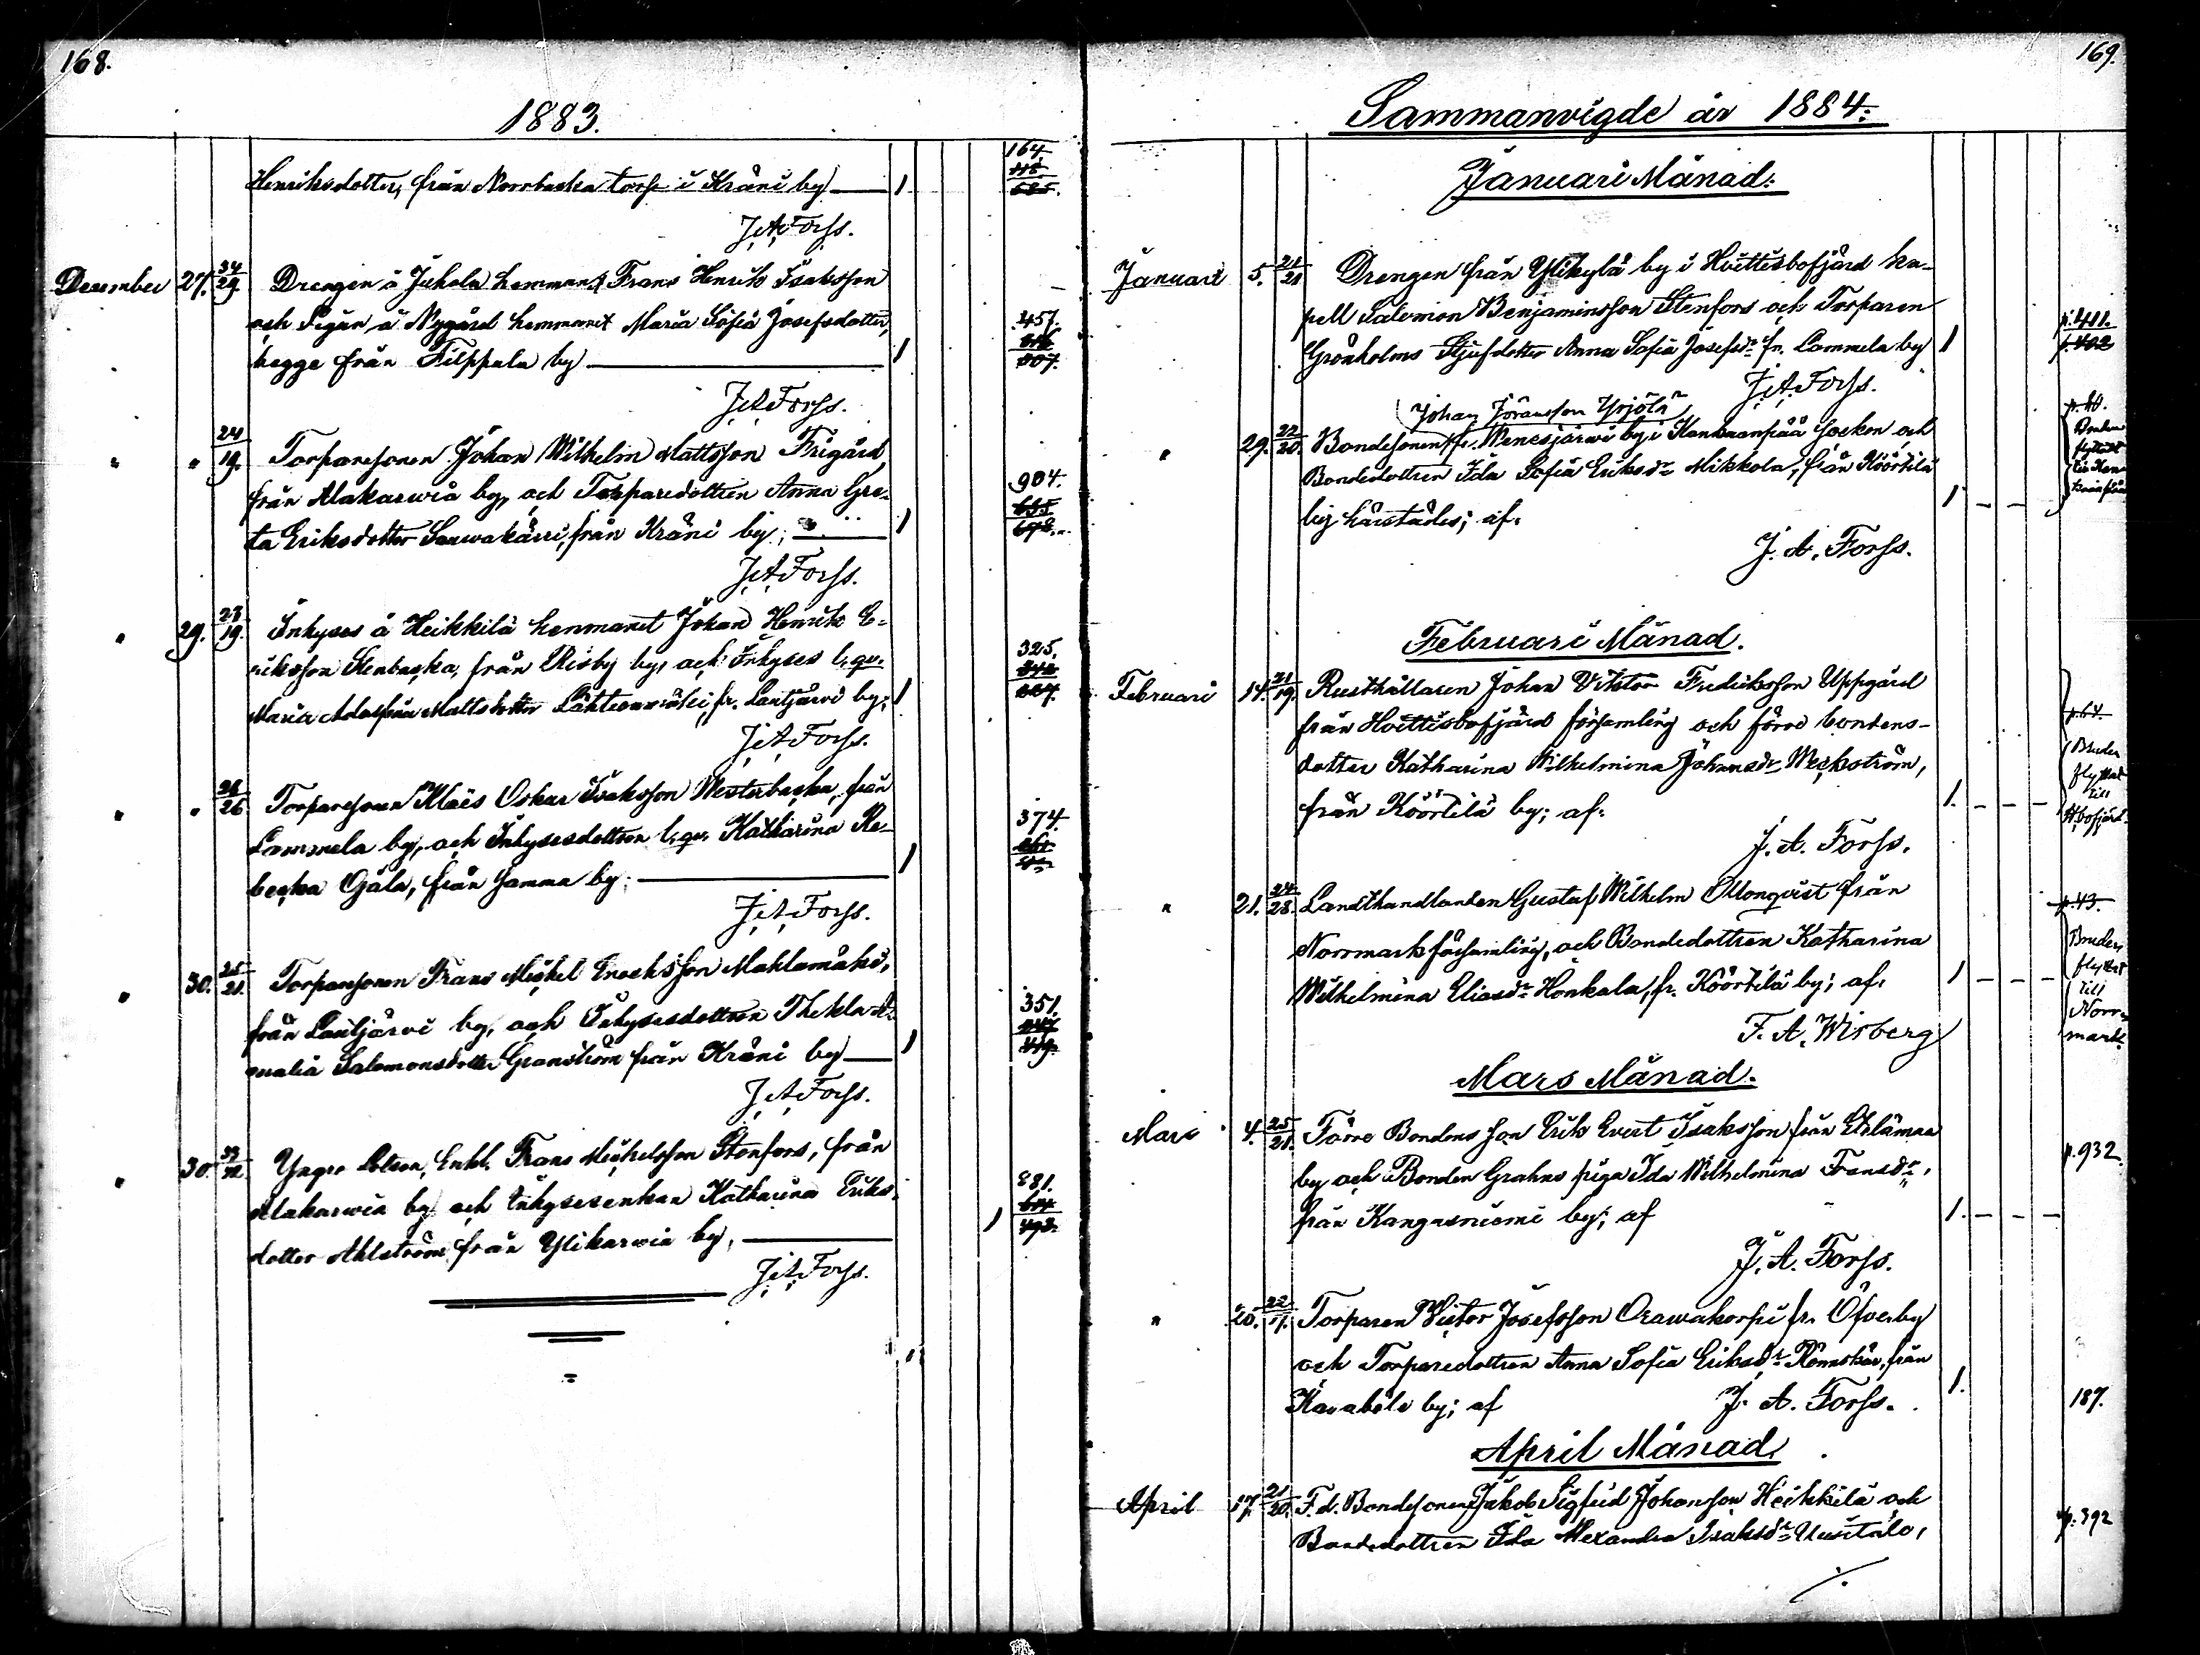 168.
1883.
Henriksdotter, från Norrbacka torp i Kråni by 1 164.
J. A. Forss.
December 27. 34/29. Drengen å Juhola hemmanet Frans Henrik Isaksson
och Pigan å Nygård hemmanet Maria Sofia Josefsdotter, 457.
begge från Filppula by 1
J. A. Forss.
" " 24/19. Torparesonen Johan Wilhelm Mattsson Frigård,
från Alakarwia by, och Torparedottren Anna Gre- 904.
ta Eriksdotter Sauwakärri, från Kråni by; 1
J. A. Forss.
" 29. 23/19. Inhyses å Heikkilä hemmanet Johan Henrik E-
riksson Stenbacka, från Risby by, och Inhyses l. qv. 325.
Maria Adolfina Mattsdotter fr. Lautjärvi by; 1
J. A. Forss.
" " 26/26. Torparesonen Klaës Oskar Isaksson Westerbacka, från
Lammela by, och Inhysesdottren l. qv. Katharina Re- 374.
becka Gäla, från samma by; 1
J. A. Forss.
" 30. 25/21. Torparesonen Frans Mickel Enocksson Mahlamäki,
från Lautjärvi by, och Inhysesdottren Thekla A- 351.
malia Salomonsdotter Granström från Kråni by 1
J. A. Forss.
" 30. Yngre Lotsen, Enkl. Frans Mickelsson Stenfors, från
Alakarwia by och Inhysesenkan Katharina Eriks- 881.
dotter Ahlström från Ylikarwia by, 1
J. A. Forss.
169.
Sammanvigde år 1884.
Januari Månad.
Januari 5. 21/21 Drengen från Ylikylä by i Hvittisbofjärd ka-
pell Salomon Benjaminsson Stenfors och Torparen
Grönholms Stjufdotter Anna Sofia Josefsdr fr. Lammela by 1 p. 402
J. A. Forss.
Johan Göransson Yrjölä
" 29. 22/20. Bondesonen fr. Wenesjärwi by i Kankaanpää Socken och
Bondedottren Ida Sofia Eriksdr Mikkola, från Köörtilä 1 – –
by härstädes; af.
p. 40.
Bruden
flyttadt
till Kan-
kaanpää
J. A. Forss.
Februari Månad.
Februari 14. 21/19. Rusthållaren Johan Viktor Fredriksson Uppgård
från Hvittisbofjärd församling och förre bondens-
dotter Katharina Wilhelmina Johansdr Weckström,
från Köörtilä by; af. 1. – – –
p. 64.
Bruden
flyttad
till
H.bofjärd.
J. A. Forss.
" 21. 24/28. Landthandlanden Gustaf Wilhelm Ollonqvist från
Norrmark församling, och Bondedottren Katharina
Wilhelmina Eliasdr Honkala, fr. Köörtilä by; af. 1 – – –
p. 43.
Bruden
flyttat
till
Norr-
mark.
F. A. Wisberg
Mars Månad.
Mars 4. 25/21. Förre Bondens son Erik Evert Isaksson från Etelämaa
by och Bonden Grahns piga Ida Wilhelmina Fransdr, p. 932.
från Kangasniemi by; af 1. – – –
J. A. Forss.
" 20. Torparen Victor Josefsson Orawakorpi fr. Öfverby
och Torparedottren Anna Sofia Eriksdr Rönnskär, från
Kasaböle by; af J. A. Forss. 1. 187.
April Månad
April 17. 21/20. F. d. Bondesonen Jakob Sigfrid Johansson Heikkilä och
Bondedottren Ida Alexandra Isaksdr Uusitalo, p. 392
./.